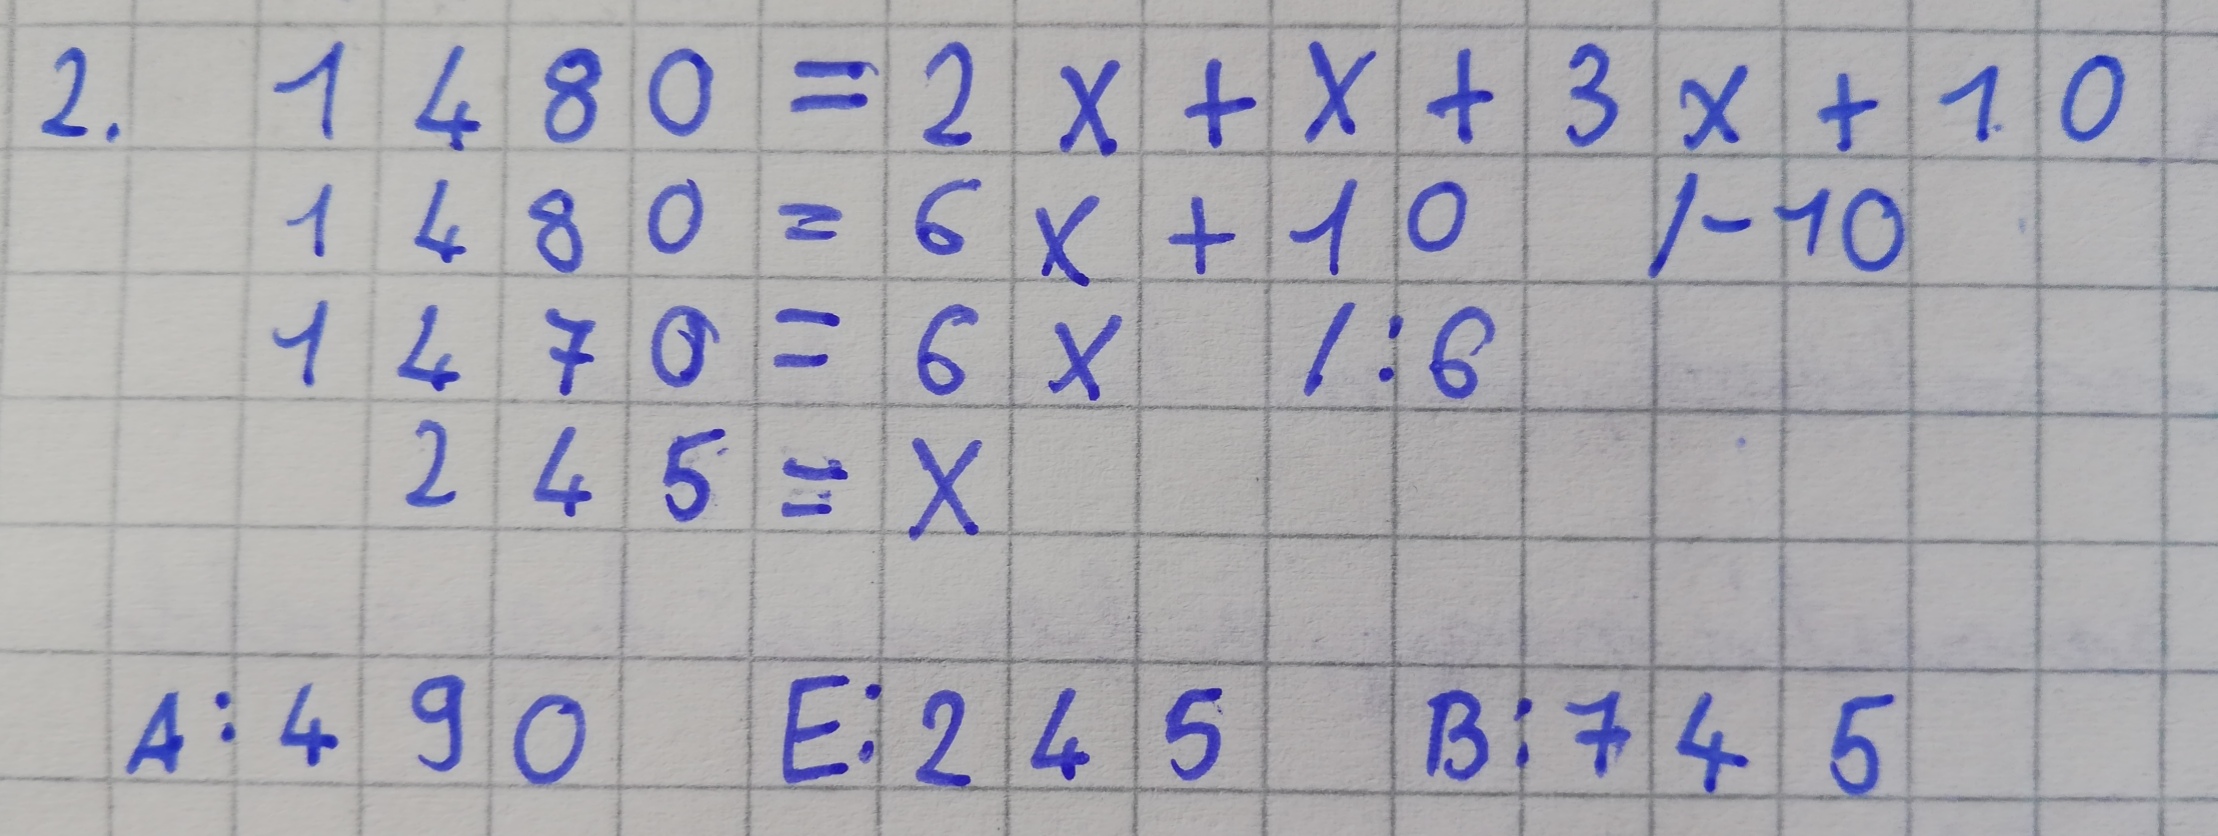 2. 1480 = 2x + x + 3x + 10
1480 = 6x + 10 /-10
1470 = 6x /:6
245 = x
A: 490 E: 245 B: 745